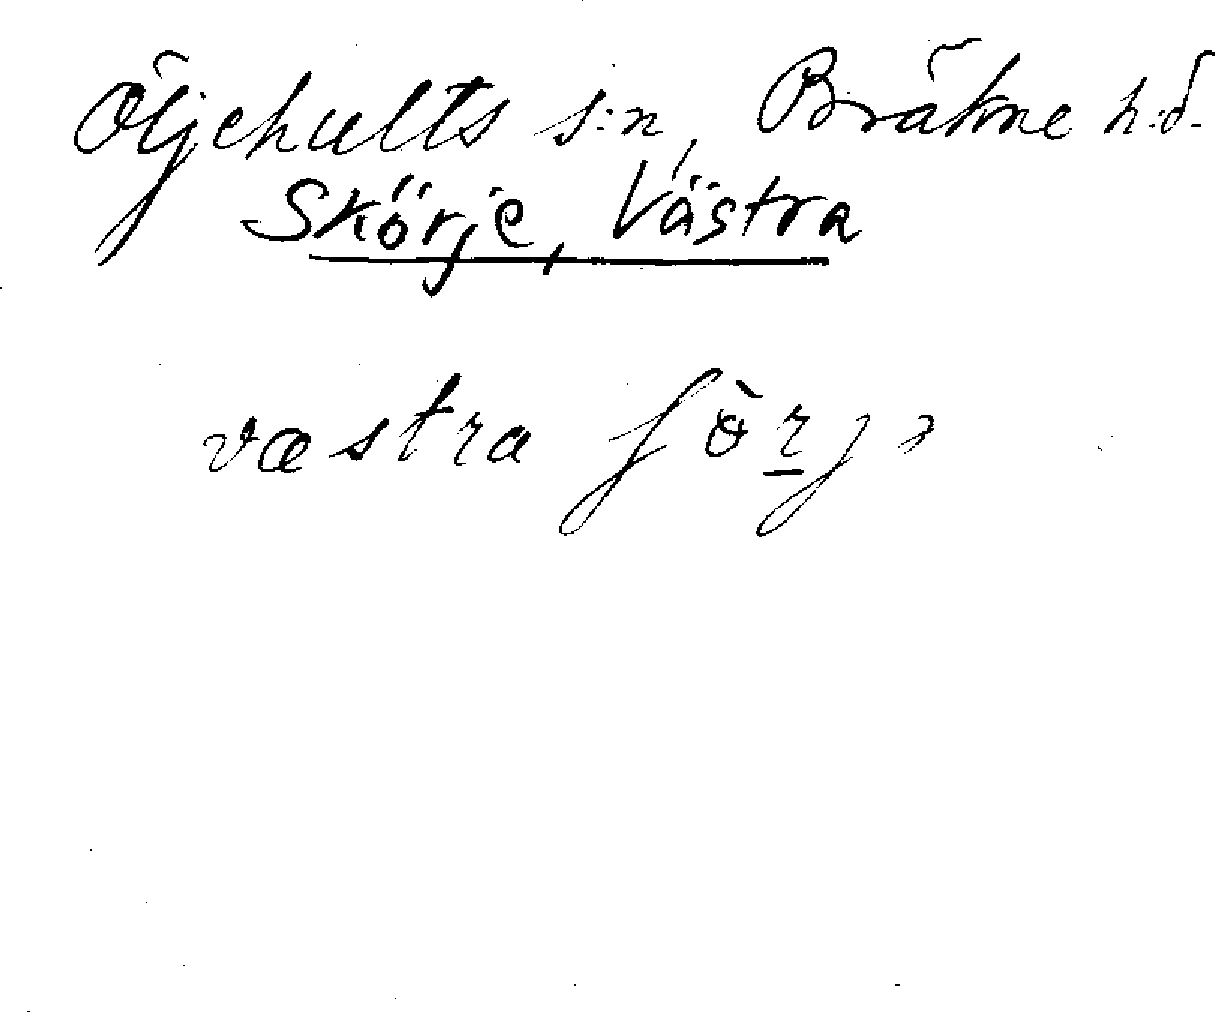 Öljehults s:n, Bräkne h:d.
Skörje, Västra
væstra ʃòrjə